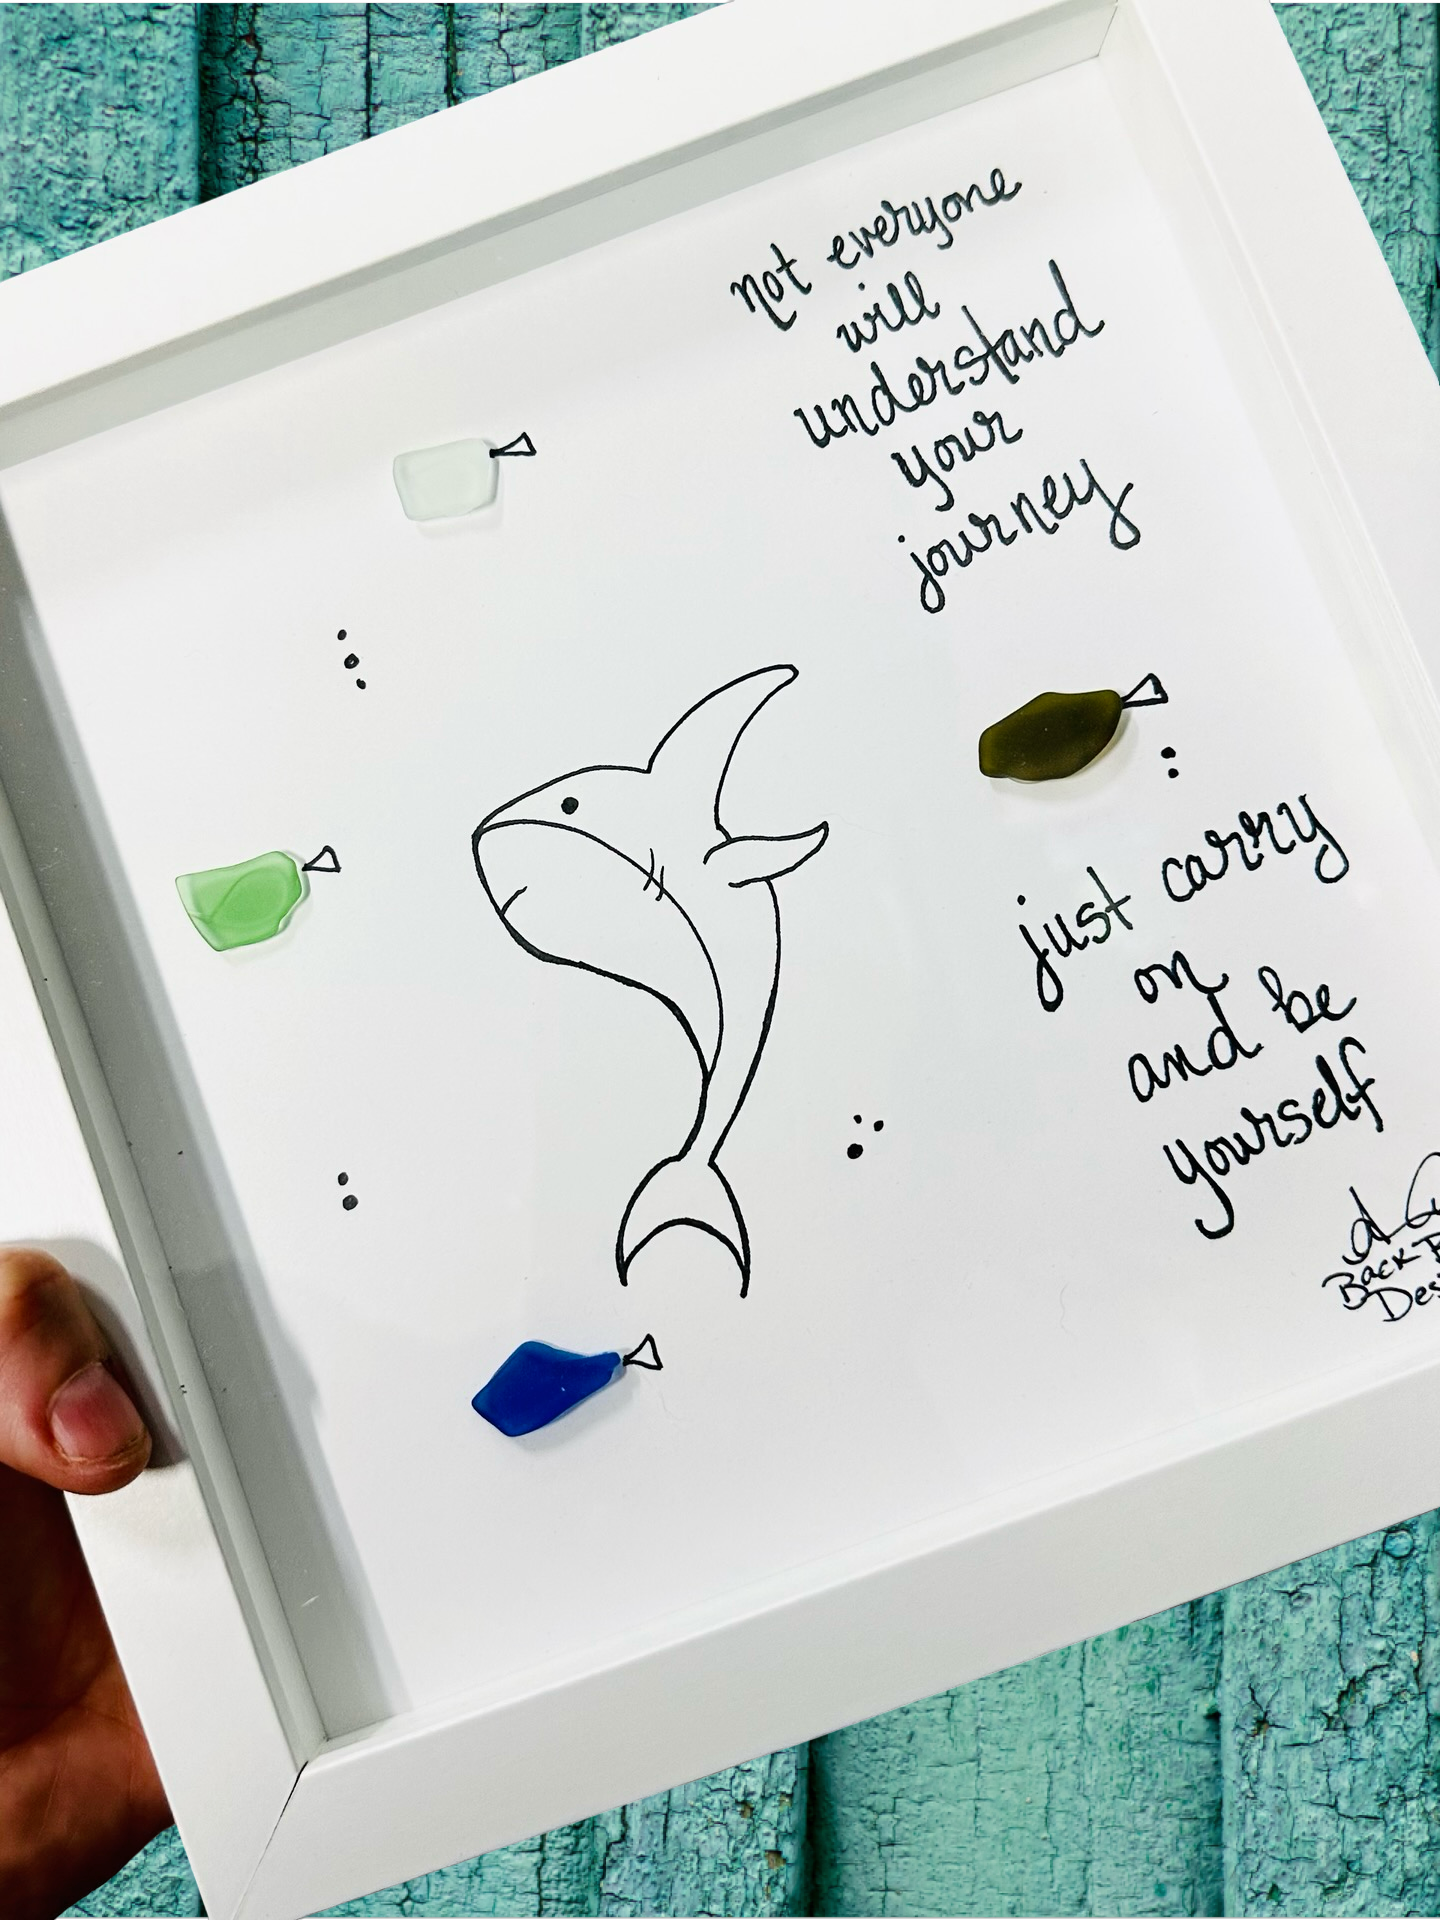 not everyone
will
understand
your
journey
just carry
on
and be
yourself
Back